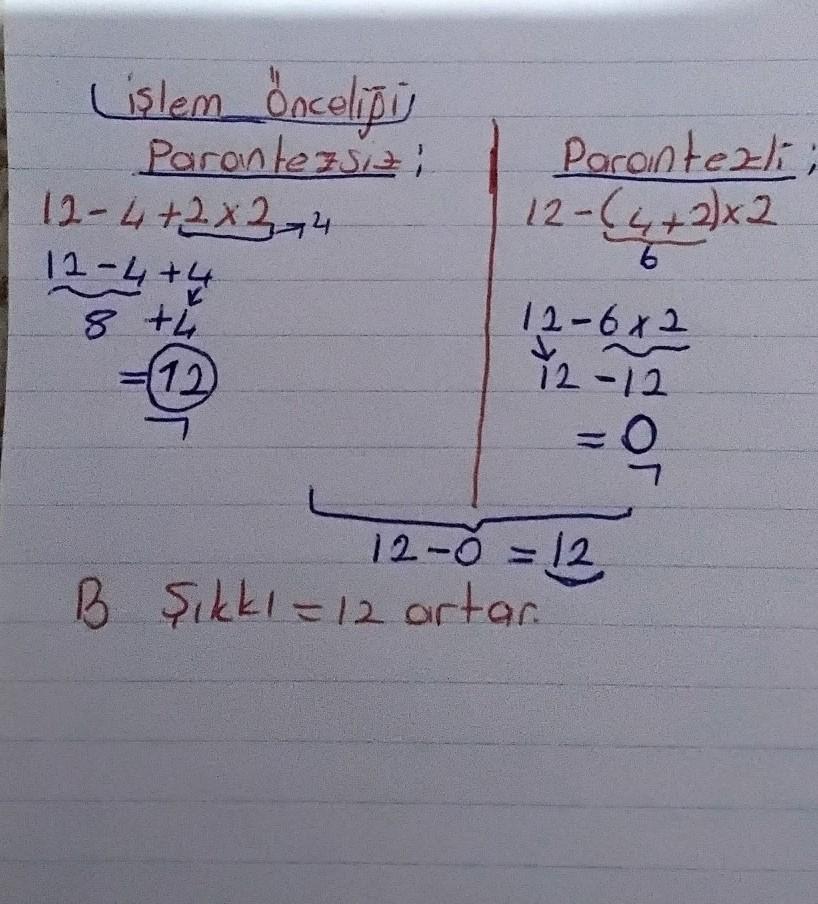 işlem Önceliği
Parantezsiz;
12-4+2x2→4
12-4+4
8 +4
=12
Parantezli;
12-(4+2)x2
6
12-6x2
12-12
=0
12-0=12
B Şıkkı=12 artar.